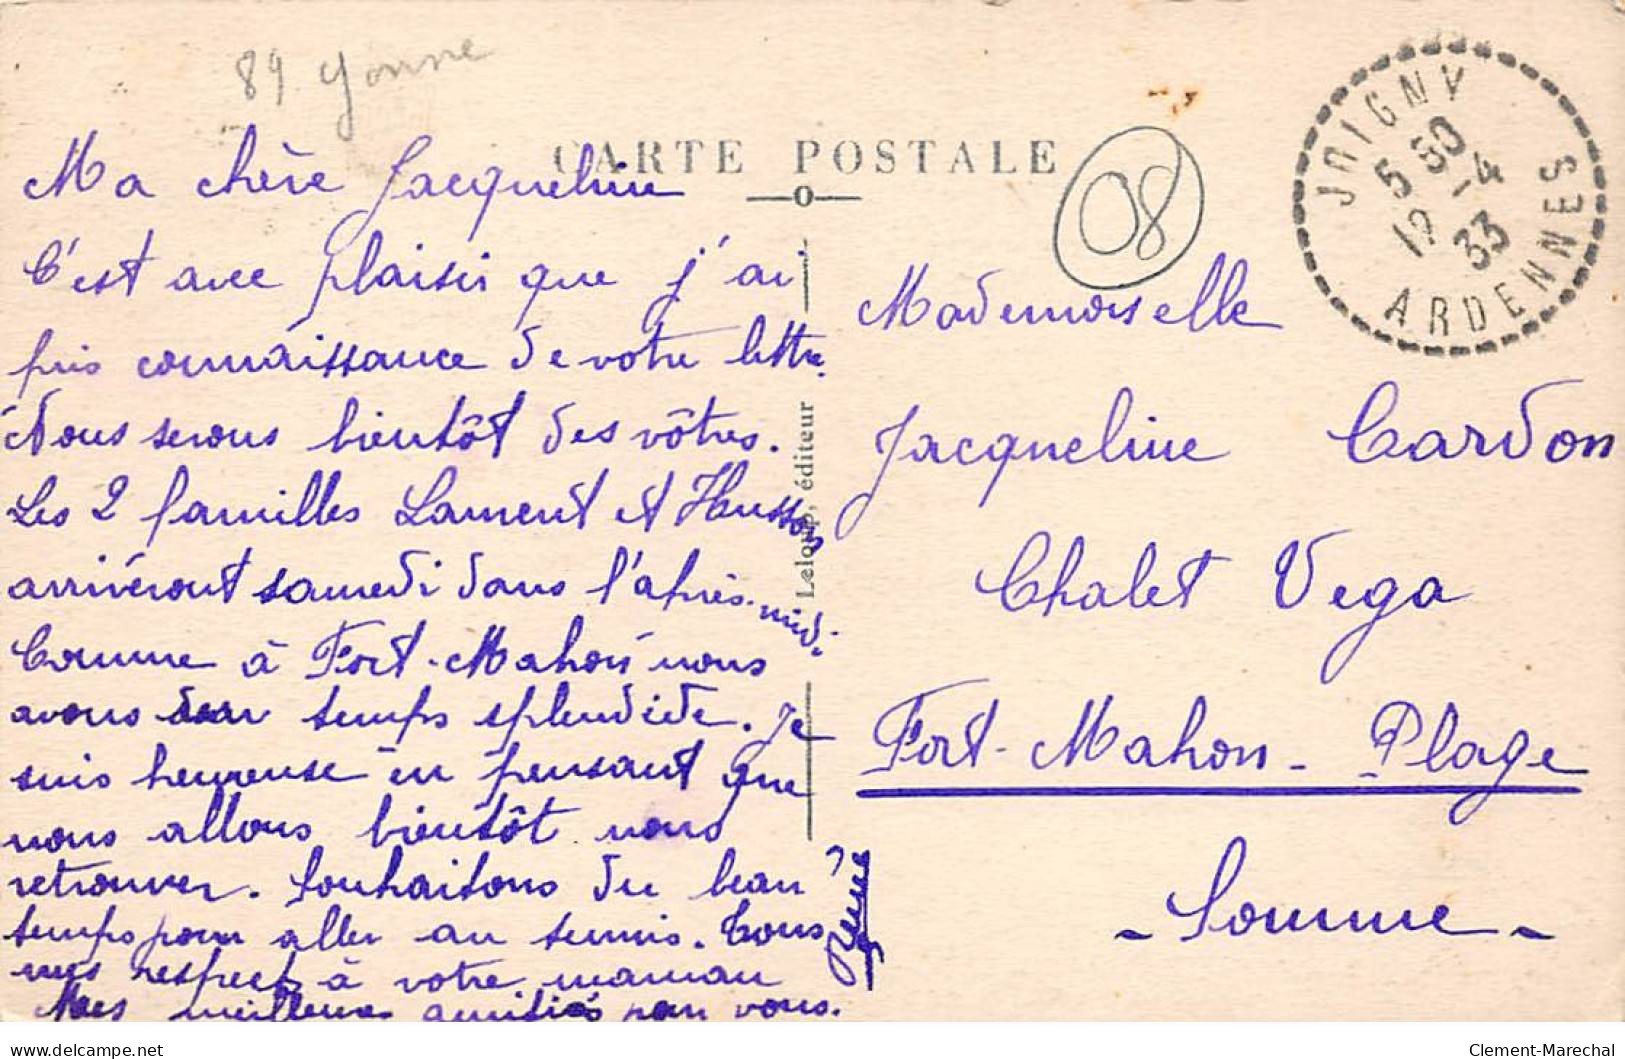 89. Yonne
CARTE POSTALE
08
JOIGNY
5 30
12 -4
33
ARDENNES
Ma chère Jacqueline
C'est avec plaisir que j'ai
pris connaissance de votre lettre.
Nous serons bientôt des vôtres.
Les 2 familles Lament et Husson
arriveront samedi dans l'après-midi.
Comme à Fort-Mahon nous
avons un temps splendide. Je
suis heureuse en pensant que
nous allons bientôt nous
retrouver. Souhaitons du beau
temps pour aller au tennis. Tous
mes respects à votre maman
Mes meilleures amitiés pour vous.
Leloup, éditeur
Mademoiselle
Jacqueline Cardon
Chalet Vega
Fort-Mahon-Plage
- Somme -
delcampe.net
Clement-Marechal